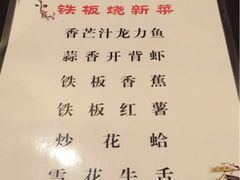 铁板烧新菜
香芒汁龙力鱼
蒜香开背虾
铁板香蕉
铁板红薯
炒花蛤
雪花牛舌